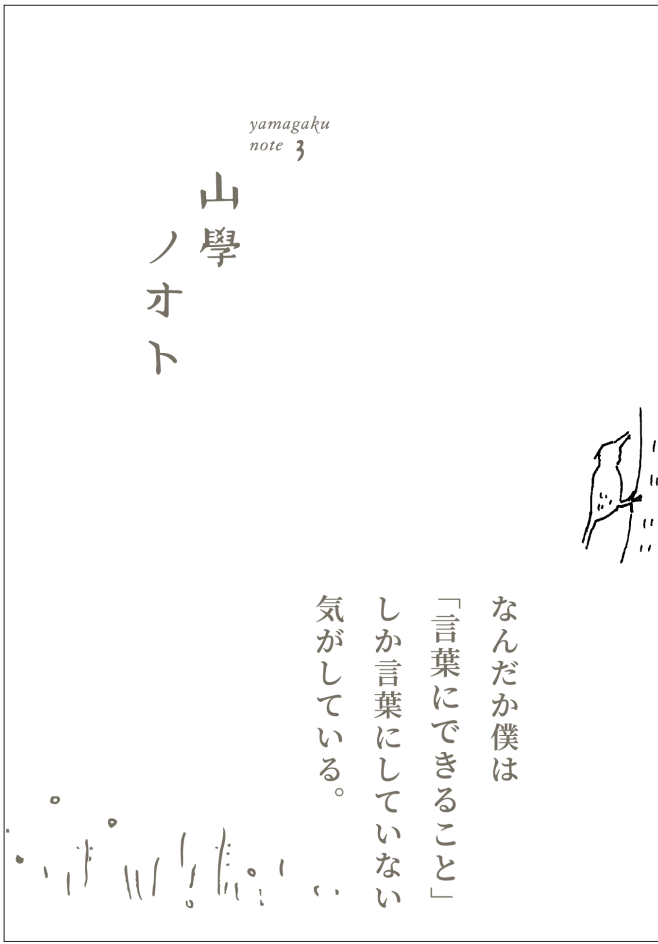 yamagaku
note 3
山學
ノオト
なんだか僕は
「言葉にできること」
しか言葉にしていない
気がしている。